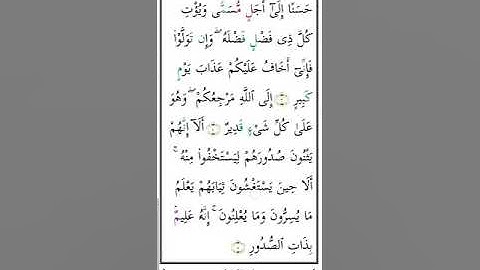 حَسَنًا إِلَىٰٓ أَجَلٍ مُّسَمًّى وَيُؤْتِ
كُلَّ ذِى فَضْلٍ فَضْلَهُۥ ۖ وَإِن تَوَلَّوْا۟
فَإِنِّىٓ أَخَافُ عَلَيْكُمْ عَذَابَ يَوْمٍ
كَبِيرٍ إِلَى ٱللَّهِ مَرْجِعُكُمْ ۖ وَهُوَ
عَلَىٰ كُلِّ شَىْءٍ قَدِيرٌ أَلَآ إِنَّهُمْ
يَثْنُونَ صُدُورَهُمْ لِيَسْتَخْفُوا۟ مِنْهُ ۚ
أَلَا حِينَ يَسْتَغْشُونَ ثِيَابَهُمْ يَعْلَمُ
مَا يُسِرُّونَ وَمَا يُعْلِنُونَ ۚ إِنَّهُۥ عَلِيمٌۢ
بِذَاتِ ٱلصُّدُورِ